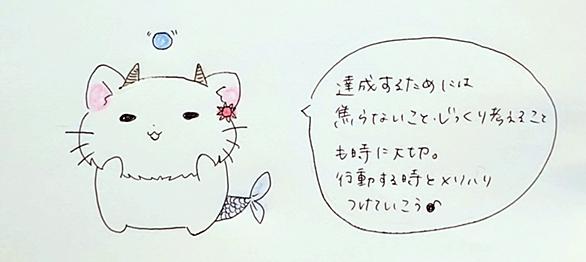 達成するためには
焦らないこと・じっくり考えること
も時に大切。
行動する時とメリハリ
つけていこう